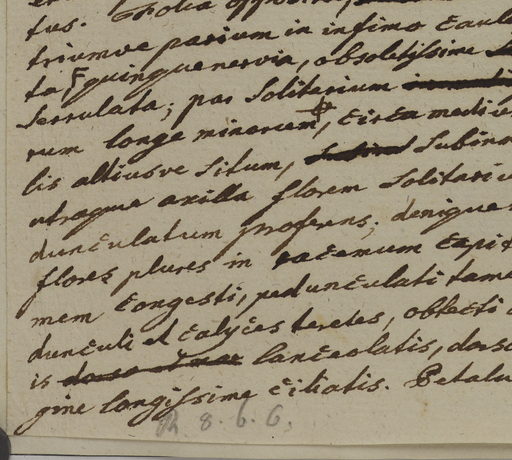 tus. Folia opposita,
triumve parium in infimo caule
ta quinquenervia, obsoletissime
serrulata; par solitarium
rum longe minorum, circa mediu
lis altiusve situm, subin
utraque axilla florem solitariu
dunculatum proferens; denique
flores plures in racemum capi
mem congesti, pedunculati tame
dunculi et calyces teretes, obtecti
is lanceolatis, dorso
gine longissime ciliatis. Petalu
R 8. 6. 6.